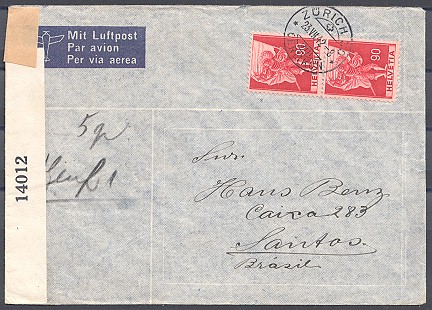 Mit Luftpost
Par avion
Per via aerea
ZÜRICH
90
HELVETIA
90
HELVETIA
5 gr
14012
Hans Benz
Caixa 283
Santos
Brásil